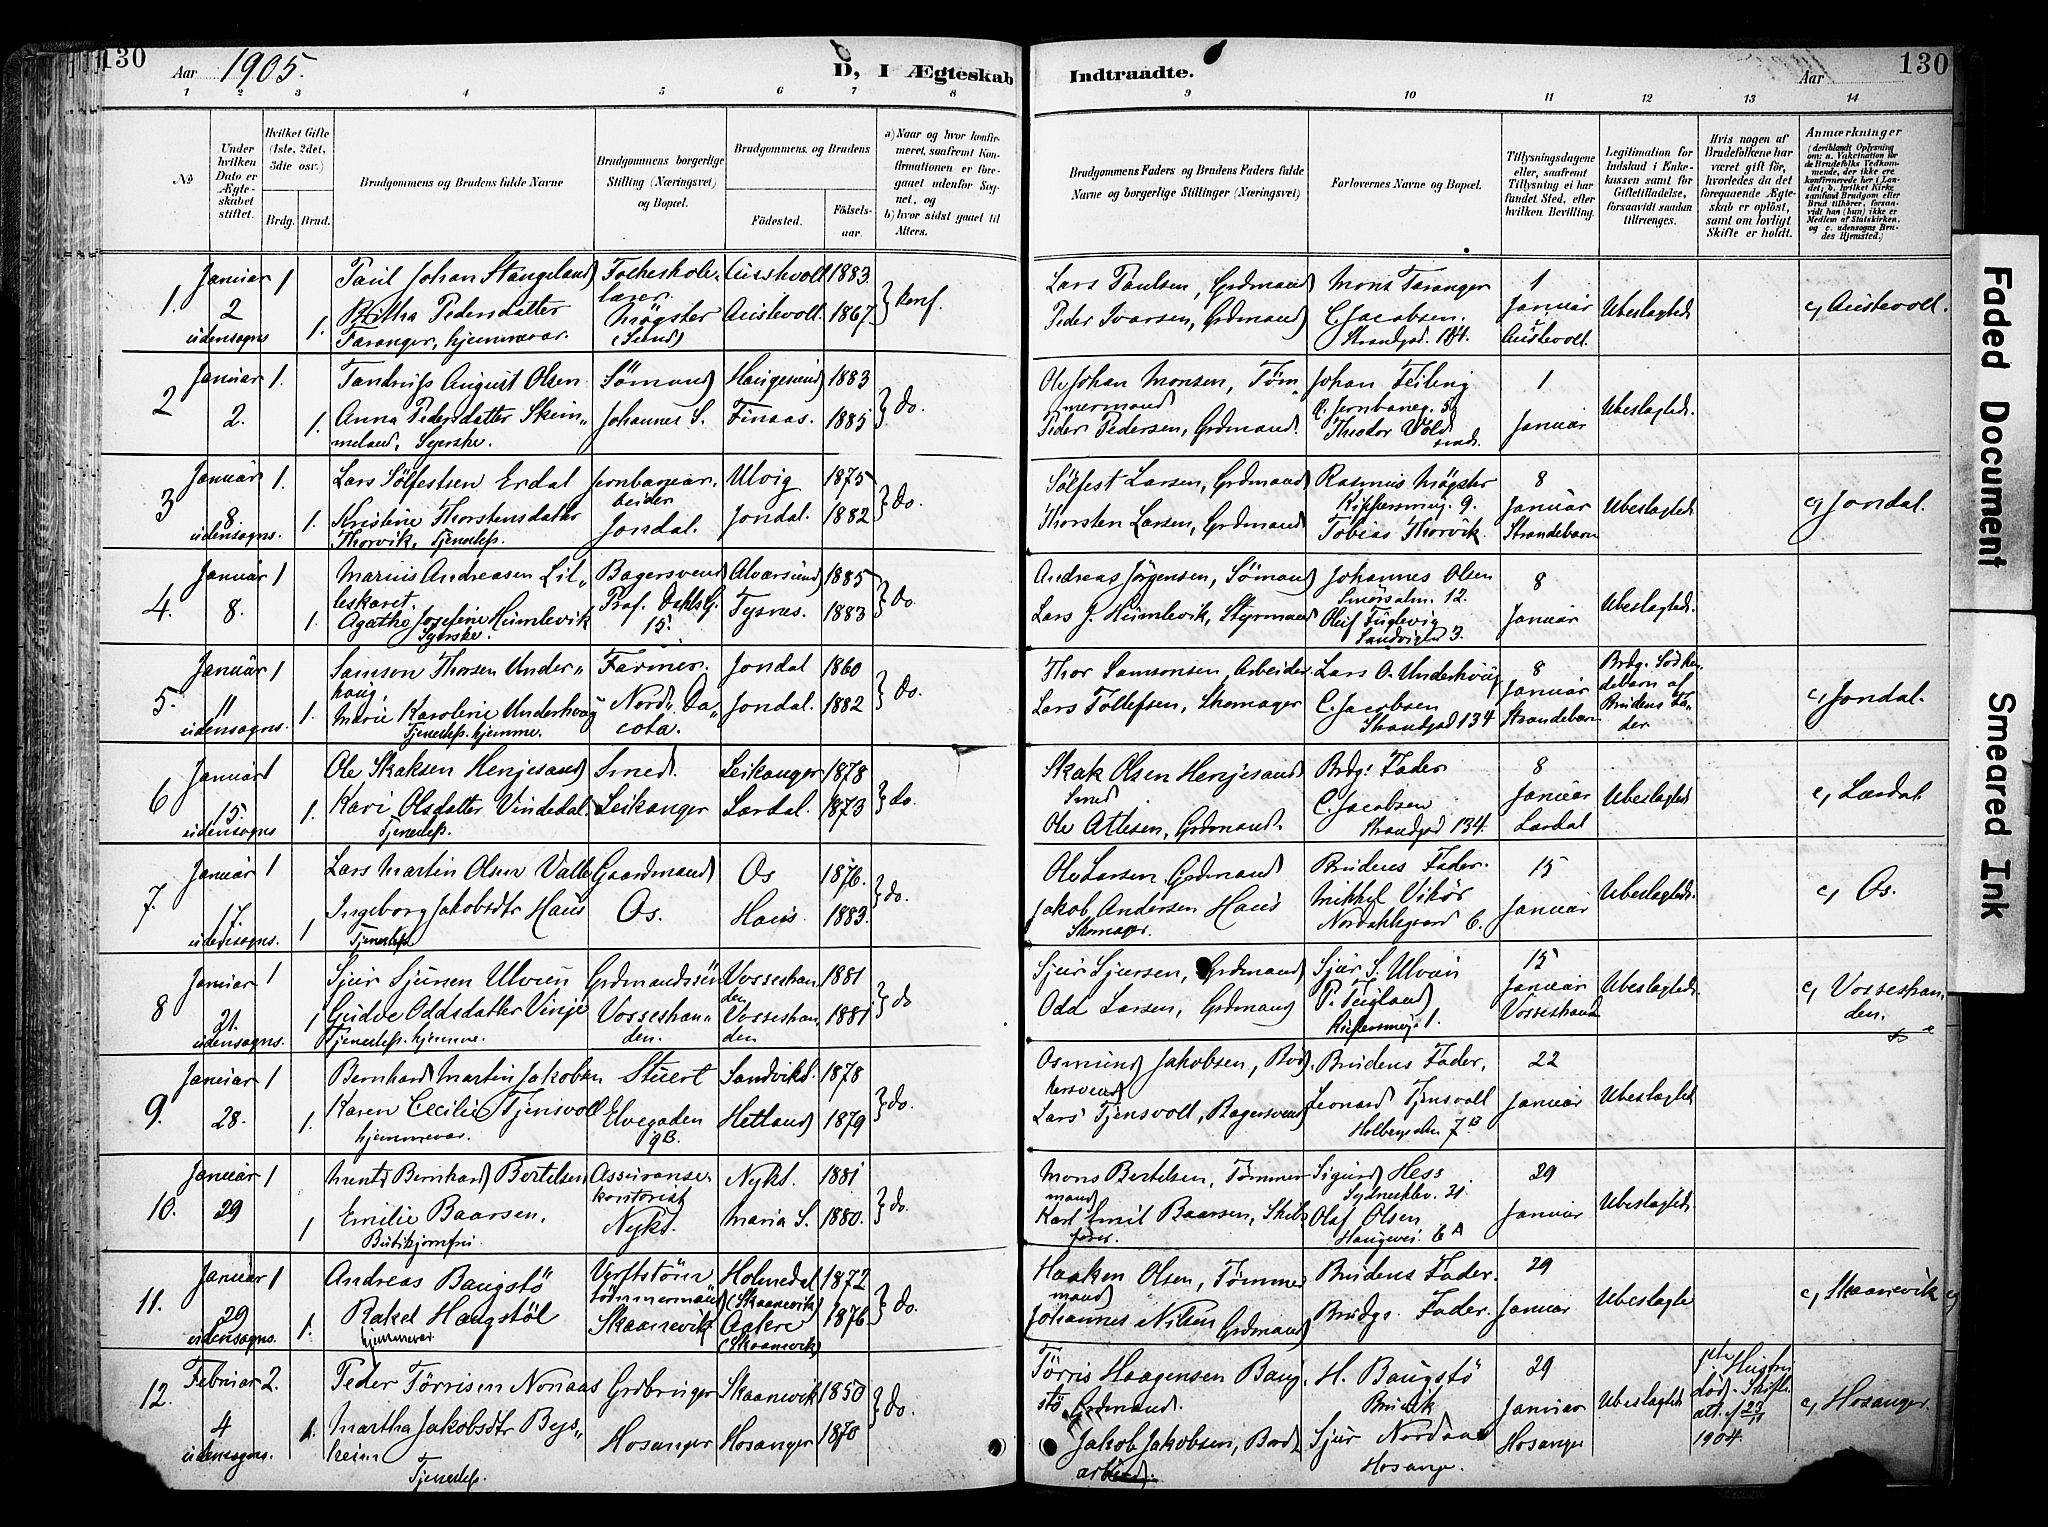 130
Aar 1905.
D, I Ægteskab
Indtraadte.
Aar
130
1 2 3 4 5 6 7 8 9 10 11 12 13 14
No
Under hvilken Dato er Ægteskabet stiftet.
Hvilket Gifte (1ste, 2det, 3die osv.)
Brdg. Brud.
Brudgommens og Brudens fulde Navne
Brudgommens borgerlige Stilling (Næringsvei) og Bopæl.
Brudgommens og Brudens
Födested.
Födselsaar.
a) Naar og hvor konfirmeret, saafremt Konfirmationen er foregaaet udenfor Sognet, og
b) hvor sidst gaaet til Alters.
Brudgommens Faders og Brudens Faders fulde Navne og borgerlige Stillinger (Næringsvei)
Forlovernes Navne og Bopæl.
Tillysningsdagene eller, saafremt Tillysning ei har fundet Sted, efter hvilken Bevilling.
Legitimation for Indskud i Enkekassen samt for Giftetilladelse, forsaavidt saadan tiltrænges.
Hvis nogen af Brudefolkene har været gift för, hvorledes da det foregaaende Ægteskab er oplöst, samt om lovligt Skifte er holdt.
Anmærkninger
(deriblandt Oplysning om: a. Vakcination for de Brudefolks Vedkommende, der ikke ere konfirmerede her i Landet; b. hvilket Kirkesamfund Brudgom eller Brud tilhörer, forsaavidt han (hun) ikke er Medlem af Statskirken, og c. udensogns Brudes Hjemsted.)
1. Januar 2 udensogns 1 1.
Paul Johan Stangeland
Britha Pedersdatter
Taranger, hjemmevær.
Folkeskolelærer
Møgster (Sund)
Austevoll 1883
Austevoll 1867
konf.
Lars Paulsen, Grdmand
Peder Ivarsen, Grdmand
Mons Taranger
C. Jacobsen. Strandgd. 134.
1 Januar Austevoll
Ubeslægted
c, Austevoll.
2 Januar 2. 1. 1.
August Olsen
Anna Pedersdatter Skimmeland, Syerske.
Sømand
Johannes S.
Haugesund 1883
Finaas. 1885
do.
Ole Johan Monsen, Tømmermand
Peder Pedersen, Grdmand.
Johan Teiling
Jernbaneg. 5
Theodor Vold
1 Januar
Ubeslægted.
3 Januar 8. udensogns. 1. 1.
Lars Sølfestsen Erdal
Kristine Thorstensdatter
Thorvik, Tjenestep.
Jernbanearbeider
Jondal.
Ulvig 1875
Jondal. 1882
do.
Sølfest Larsen, Grdmand
Thorsten Larsen, Grdmand
Rasmus Møgster
9.
Tobias Thorvik.
8 Januar Strandebarm
Ubeslægted
c, Jondal.
4. Januar 8. 1 1.
Marius Andreasen Lilleskaret.
Agathe Josefine Humlevik
Syerske.
Bagersvend
Prof. Dahls G. 15.
Alversund 1885
Tysnes. 1883
do
Andreas Jørgensen, Sømand
Lars J. Humlevik, Styrmand
Johannes Olsen
Smørsalm. 12.
Oluf Fuglevig
Sandvigen 3.
8 Januar
Ubeslægted.
5. Januar 11 udensogns. 1 1.
Samson Thorsen Underhaug
Marie Karoline Underhaug
Tjenestep. hjemme.
Farmer.
Nord-Dacota.
Jondal 1860
Jondal. 1882
do.
Thor Samsonsen, Arbeider
Lars Tollefsen, Skomager
Lars O. Underhaug
C. Jacobsen
Strandgd 134
8 Januar Strandebarm
Brdg. Sødskendebarn af Brudens Fader
c, Jondal.
6 Januar 15. udensogns 1 1.
Ole Skaksen Henjesand
Kari Olsdatter Vindedal.
Tjenestep.
Smed.
Leikanger
Leikanger 1878
Lærdal. 1873
do.
Skak Olsen Henjesand
Smed
Ole Atlesen, Grdmand.
Brdgs Fader
C. Jacobsen
Strandgd 134.
8 Januar Lærdal
Ubeslægted
c, Lærdal.
7. Januar 17. udensogns. 1 1
Lars Martin Olsen Valle
Ingeborg Jakobsdtr Haus
Tjenestep.
Gaardmand
Os.
Os 1876.
Haus. 1883.
do.
Ole Larsen, Grdmand
Jakob Andersen Haus
Skomager.
Brudens Fader.
Mikkel Vikør
6.
15 Januar
Ubeslægted.
c, Os.
8 Januar 21. udensogns. 1 1
Sjur Sjursen Ulvun
Gudve Oddsdatter Vinje
Tjenestep. hjemme.
Grdmandssøn
Vossestranden.
Vossestranden 1881
Vossestranden 1881
do
Sjur Sjursen, Grdmand
Odd Larsen, Grdmand
Sjur S. Ulvun
P. Teigland
1.
15 Januar Vossestrand
Ubeslægted.
c, Vossestranden.
9. Januar 28. 1 1.
Bernhard Martin Jakobsen
Karen Cecilie Tjensvoll
hjemmevær.
Stuert
Elvegaden 9B.
Sandvikk. 1878
Hetland 1879
do.
Osmund Jakobsen, Bødkersvend
Lars Tjensvoll, Bagersvend
Brudens Fader.
Leonard Tjensvoll
Holbergsalm 7B
22 Januar
Ubeslægted
10. Januar 29 1 1
Bernhard Bertelsen
Emilie Baarsen.
Butikjomfru.
Assuransekontorist
Nykk.
Nykk. 1881
Maria S. 1880.
do.
Mons Bertelsen, Tømmermand
Karl Emil Baarsen, Skibsfører.
Sigurd Hess
Sydneskl. 21.
Olaf Olsen
Haugevei. 6A
29 Januar
Ubeslægted.
11. Januar 29 udensogns. 1 1.
Andreas Baugstø
Rakel Haugstøl
hjemmevær
Verftstømmermand
Skaanevik
Holmedal (Skaanevik) 1872
(Skaanevik) 1876
do.
Haaken Olsen, Tømmermand
Johannes Nilsen Grdmand
Brudens Fader.
Brudgs. Fader.
29 Januar
Ubeslægte
c, Skaanevik
12. Februar 4 udensogns. 2. 1.
Peder Tørrisen Nonaas
Martha Jakobsdtr Bysheim
Tjenestep.
Grdbruger
Hosanger
Skaanevik 1850
Hosanger 1870
do.
Tørris Haagensen Baugstø, Grdmand.
Jakob Jakobsen,
H. Baugstø
Bruvik
Sjur Nordaas
Hosanger.
29 Januar Hosanger
Ubeslægted
1ste Hustru død. Skifteatt. 23/11 1904.
c, Hosanger.
Faded Document
Smeared Ink